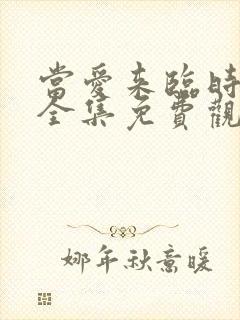 當愛来臨時
全集免費觀
娜年秋意暖